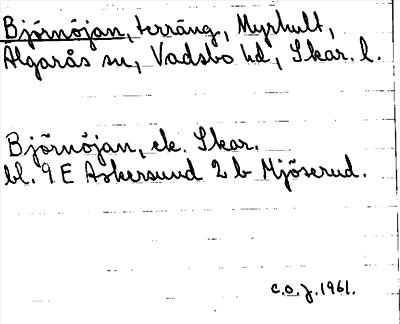 Björnöjan, terräng, Myrhult,
Älgarås sn, Vadsbo hd, Skar. l.
Björnöjan, ek. Skar.
bl. 9 E Askersund 2 b Mjöserud.
c.o.j. 1961.